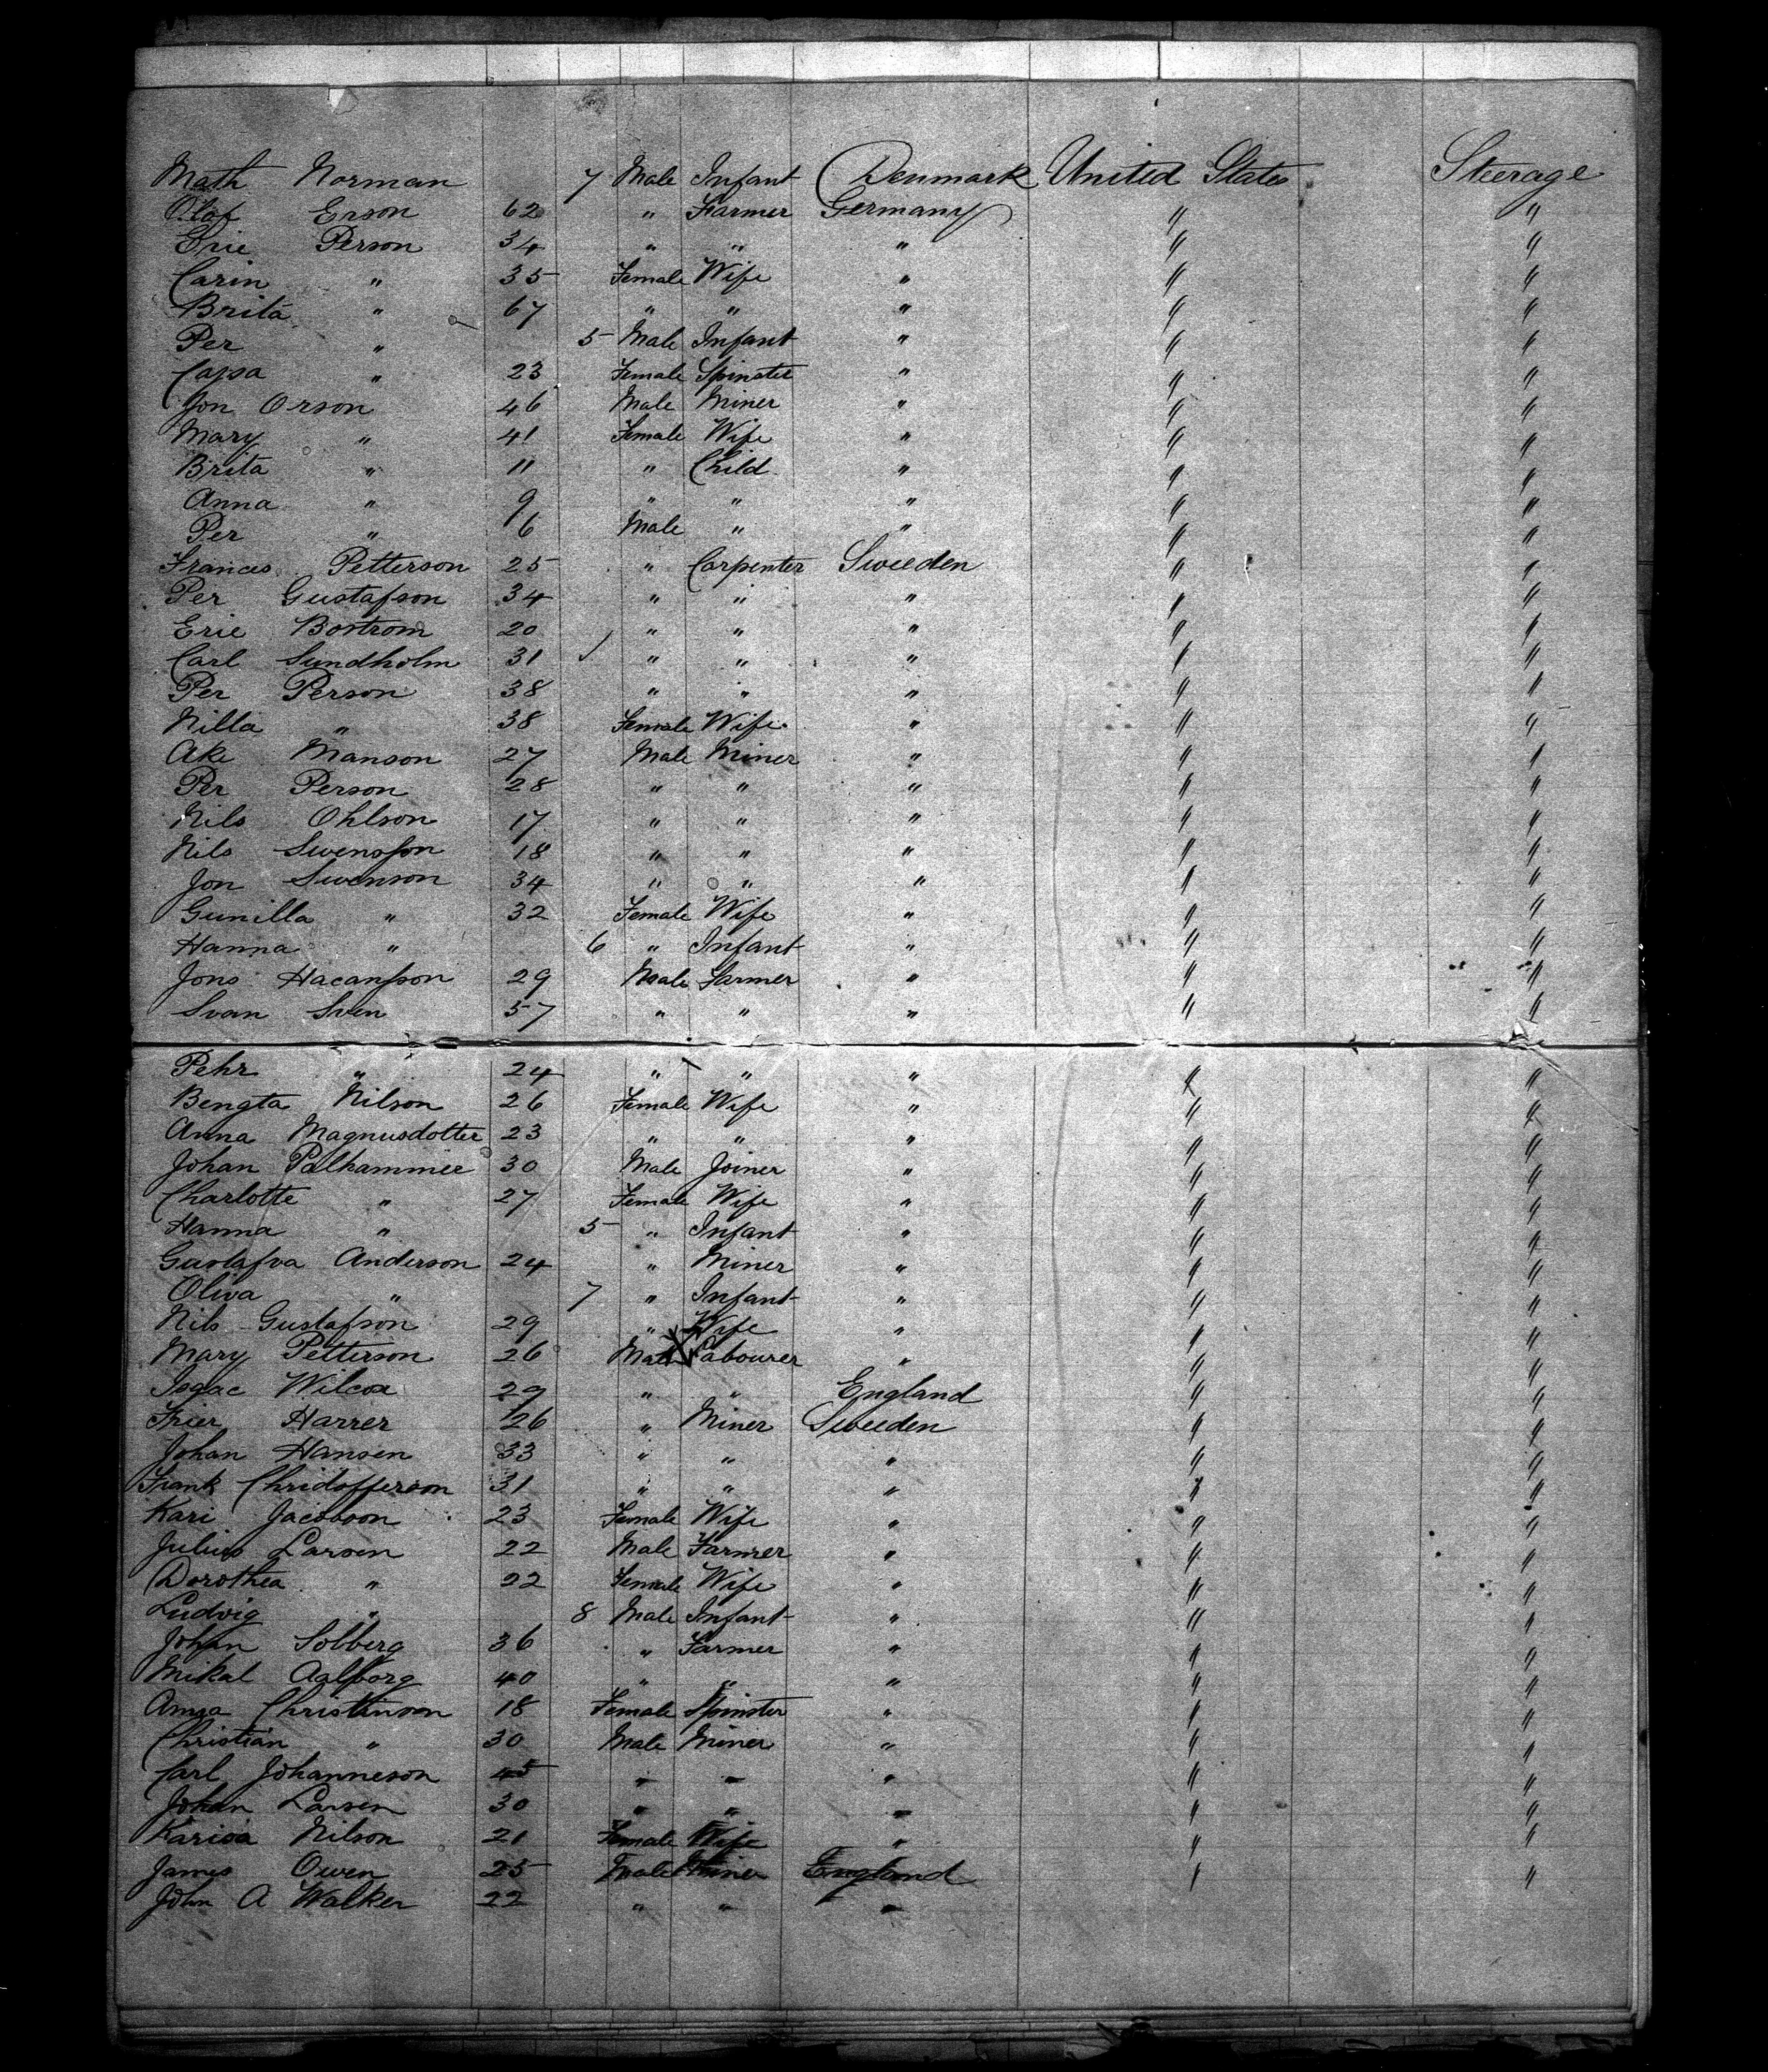 Math Norman 7 Male Infant Denmark United States Steerage
Olof Erson 62 " Farmer Germany " "
Eric Person 34 " " " " "
Carin " 35 Female Wife " " "
Brita " 67 " " " " "
Per " 5 Male Infant " " "
Cajsa " 23 Female Spinster " " "
Jon Orson 46 Male Miner " " "
Mary " 41 Female Wife " " "
Brita " 11 " Child " " "
Anna " 9 " " " " "
Per " 6 Male " " " "
Frances Petterson 25 " Carpenter Sweeden " "
Per Gustafson 34 " " " " "
Eric Bostrom 20 " " " " "
Carl Sundholm 31 " " " " "
Per Person 38 " " " " "
Nilla " 38 Female Wife " " "
Ake Manson 27 Male Miner " " "
Per Person 28 " " " " "
Nils Ohlson 17 " " " " "
Nils Swensson 18 " " " " "
Jon Swenson 34 " " " " "
Gunilla " 32 Female Wife " " "
Hanna " 6 " Infant " " "
Jons Hacansson 29 Male Farmer " " "
Svan Sven 57 " " " " "
Pehr " 24 " " " " "
Bengta Nilson 26 Female Wife " " "
Anna Magnusdotter 23 " " " " "
Johan Palhammer 30 Male Joiner " " "
Charlotte " 27 Female Wife " " "
Hanna " 5 " Infant " " "
Gustafva Anderson 24 " Miner " " "
Oliva " 7 " Infant " " "
Nils Gustafson 29 " Wife " " "
Mary Petterson 26 Male Labourer " " "
Isaac Wilcox 29 " " England " "
Frier Harrer 26 " Miner Sweeden " "
Johan Hansen 33 " " " " "
Frank Chridofferson 31 " " " " "
Kari Jacobson 23 Female Wife " " "
Julius Larsen 22 Male Farmer " " "
Dorothea " 22 Female Wife " " "
Ludvig " 8 Male Infant " " "
Johan Solberg 36 " Farmer " " "
Mikal Aalborg 40 " " " " "
Anna Christinson 18 Female Spinster " " "
Christian " 30 Male Miner " " "
Carl Johanneson 45 " " " " "
Johan Larsen 30 " " " " "
Karisa Nilson 21 Female Wife " " "
James Owen 25 Male Miner England " "
John A Walker 22 " " "